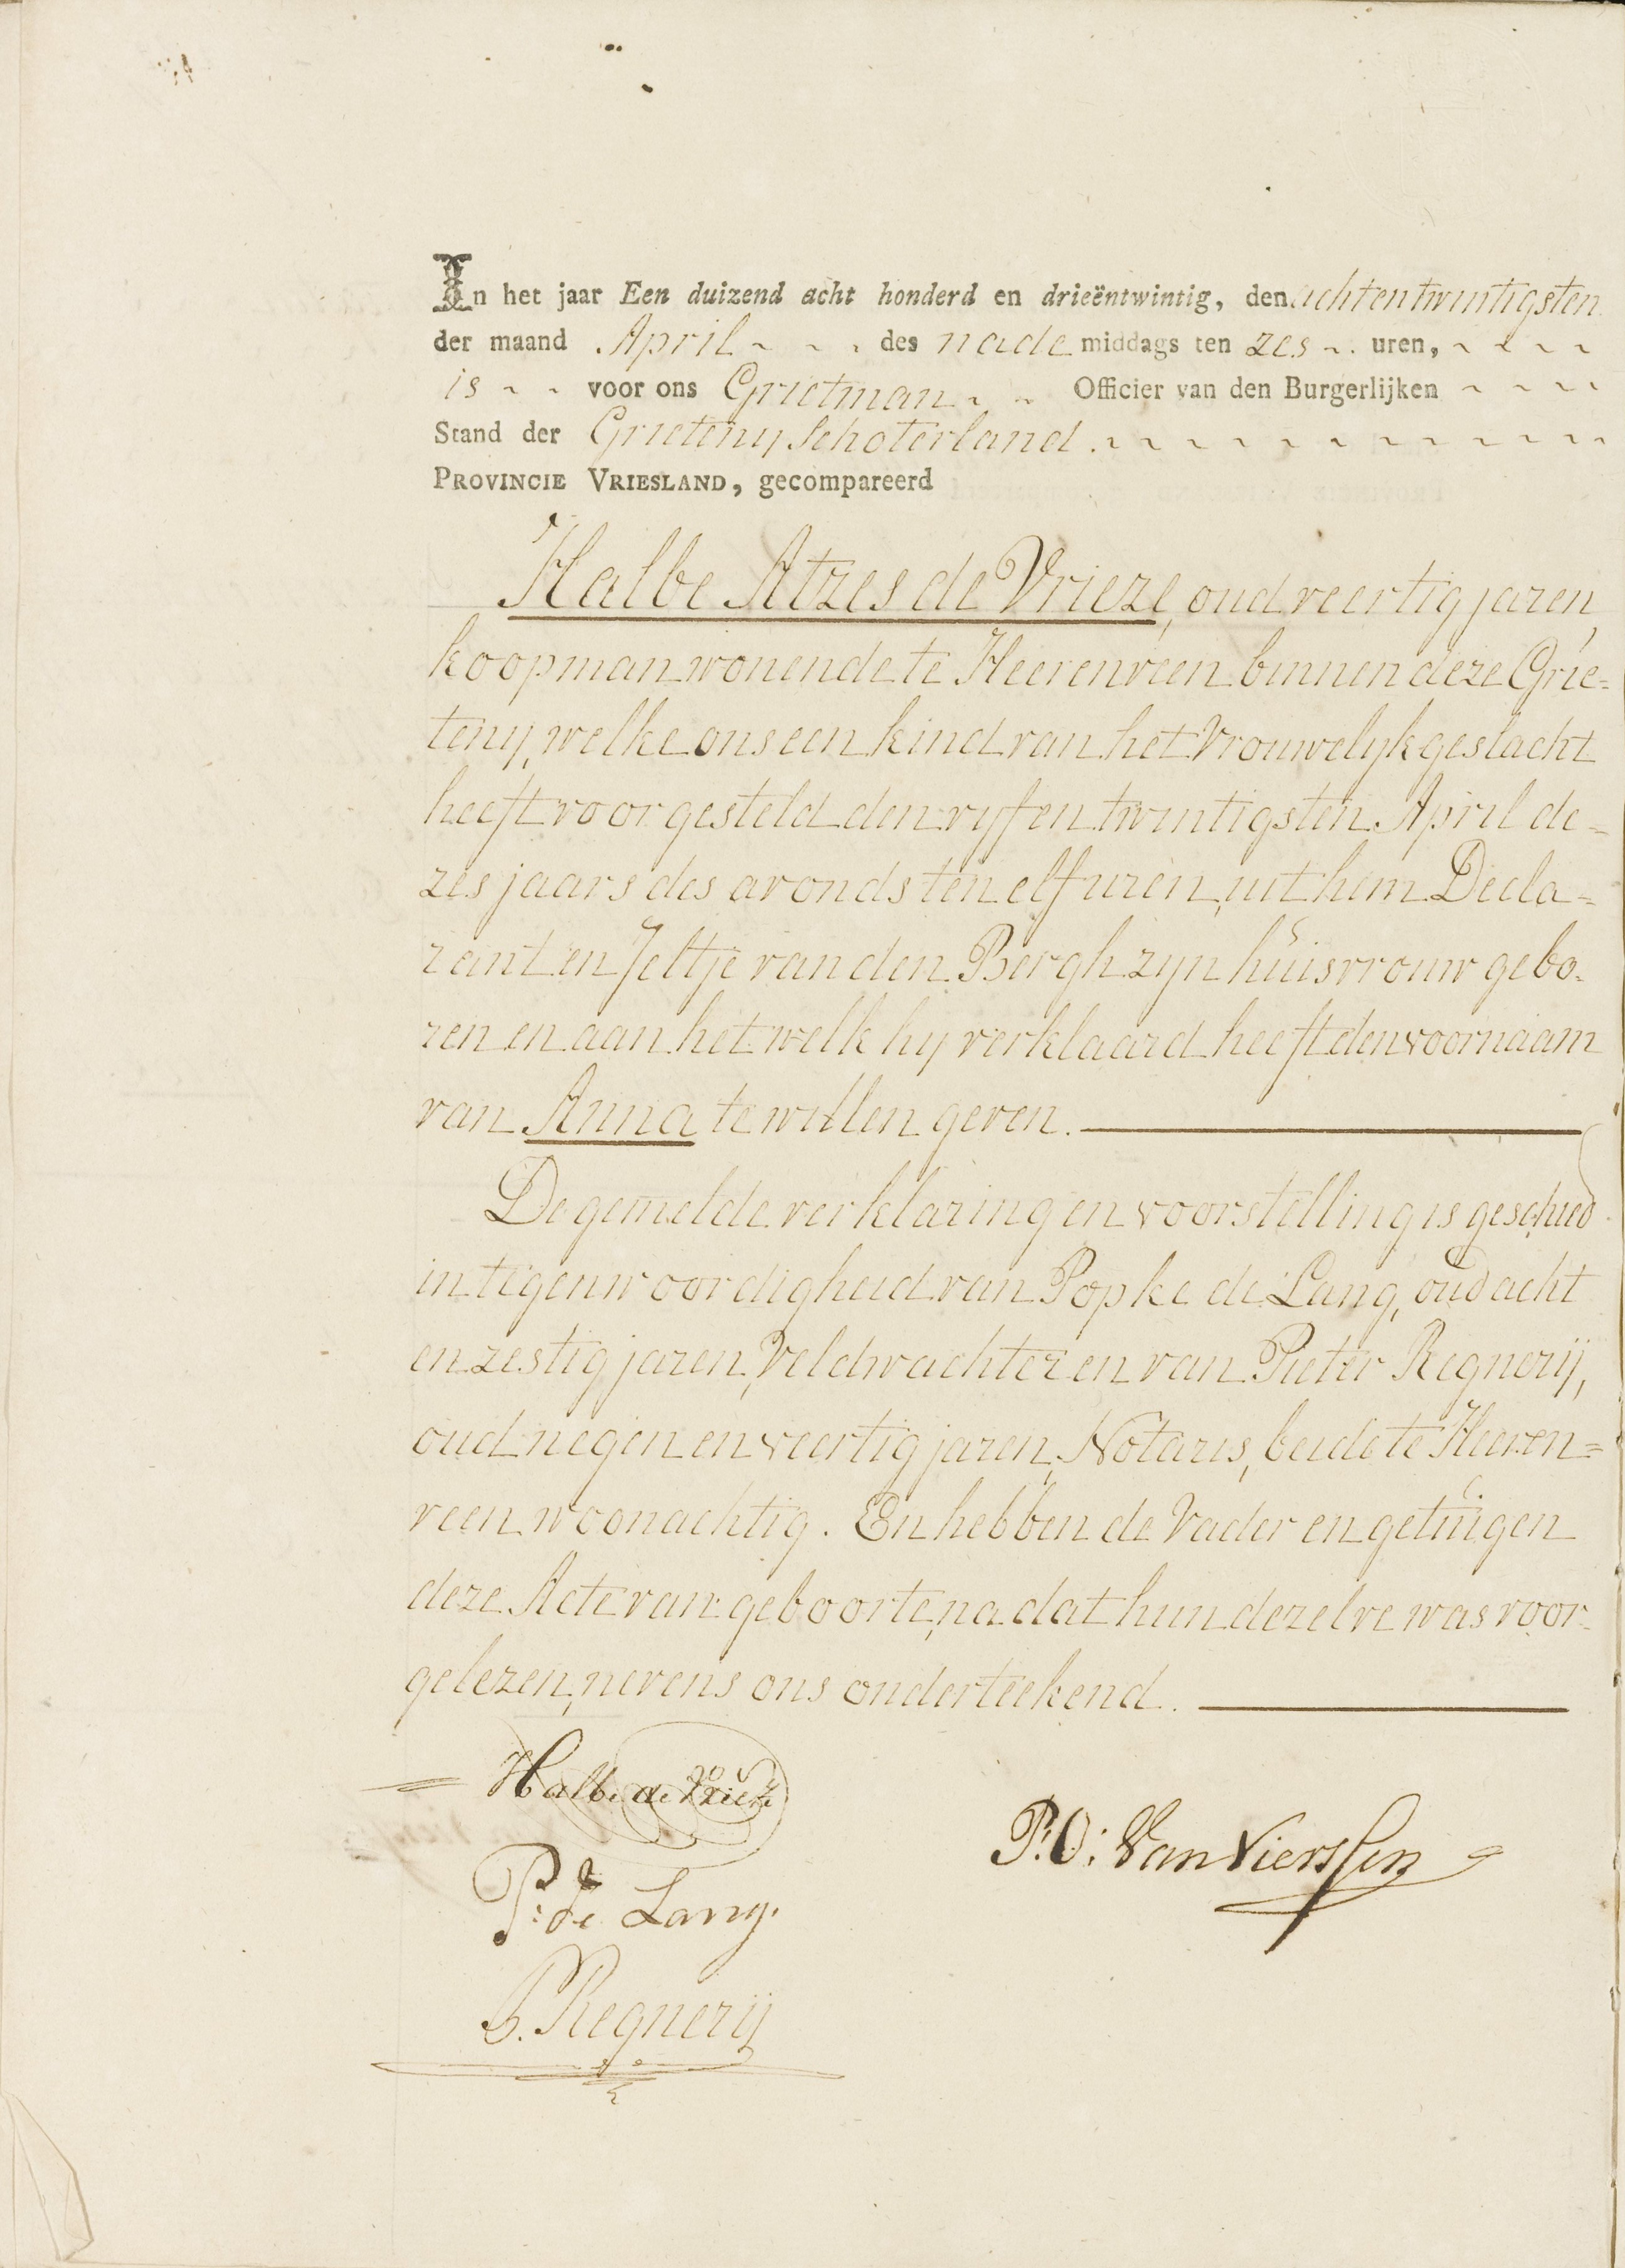 In het jaar Een duizend acht honderd en drieëntwintig, den achtentwintigsten
der maand April des nade middags ten zes uren,
is voor ons Grietman Officier van den Burgerlijken
Stand der Grieteny Schoterland.
PROVINCIE VRIESLAND, gecompareerd
Halbe Atzes de Vrieze, oud veertig jaren,
koopman wonende te Heerenveen binnen deze Grie=
teny, welke ons een kind van het Vrouwelyk geslacht
heeft voorgesteld den vyfentwintigsten April de=
zes jaars des avonds ten elf uren, uit hem Decla=
rant en Jeltje van den Bergh zyn huisvrouw gebo=
ren en aan het welk hy verklaard heeft den voornaam
van Anna te willen geven.
De gemelde verklaring en voorstelling is geschied
in tegenwoordigheid van Popke de Lang, oud acht
en zestig jaren, Veldwachter en van Pieter Regnerij,
oud negen en veertig jaren, Notaris, beide te Heeren=
veen woonachtig. En hebben de Vader en getuigen
deze Acte van geboorte, na dat hun dezelve was voor=
gelezen, nevens ons onderteekend.
Halbe de Vrieze
P: O: Van Vierssen
P: de Lang.
P. Regnerij